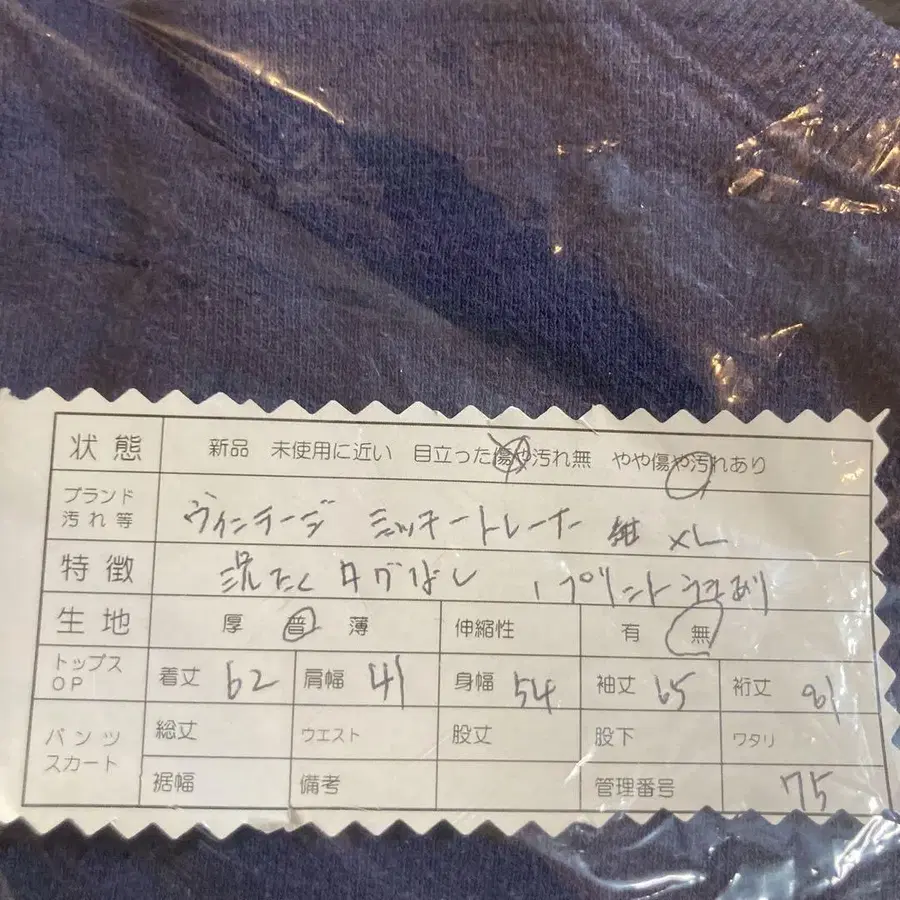 状態 新品 未使用に近い 目立った傷や汚れ無 やや傷や汚れあり
ブランド
汚れ等 ヴィンテージ ミッキートレーナー 紺 XL
特徴 洗たくタグなし プリント
生地 厚 普 薄 伸縮性 有 無
トップス
OP 着丈 62 肩幅 41 身幅 54 袖丈 65 裄丈 81
パンツ
スカート 総丈 ウエスト 股丈 股下 ワタリ
裾幅 備考 管理番号 75